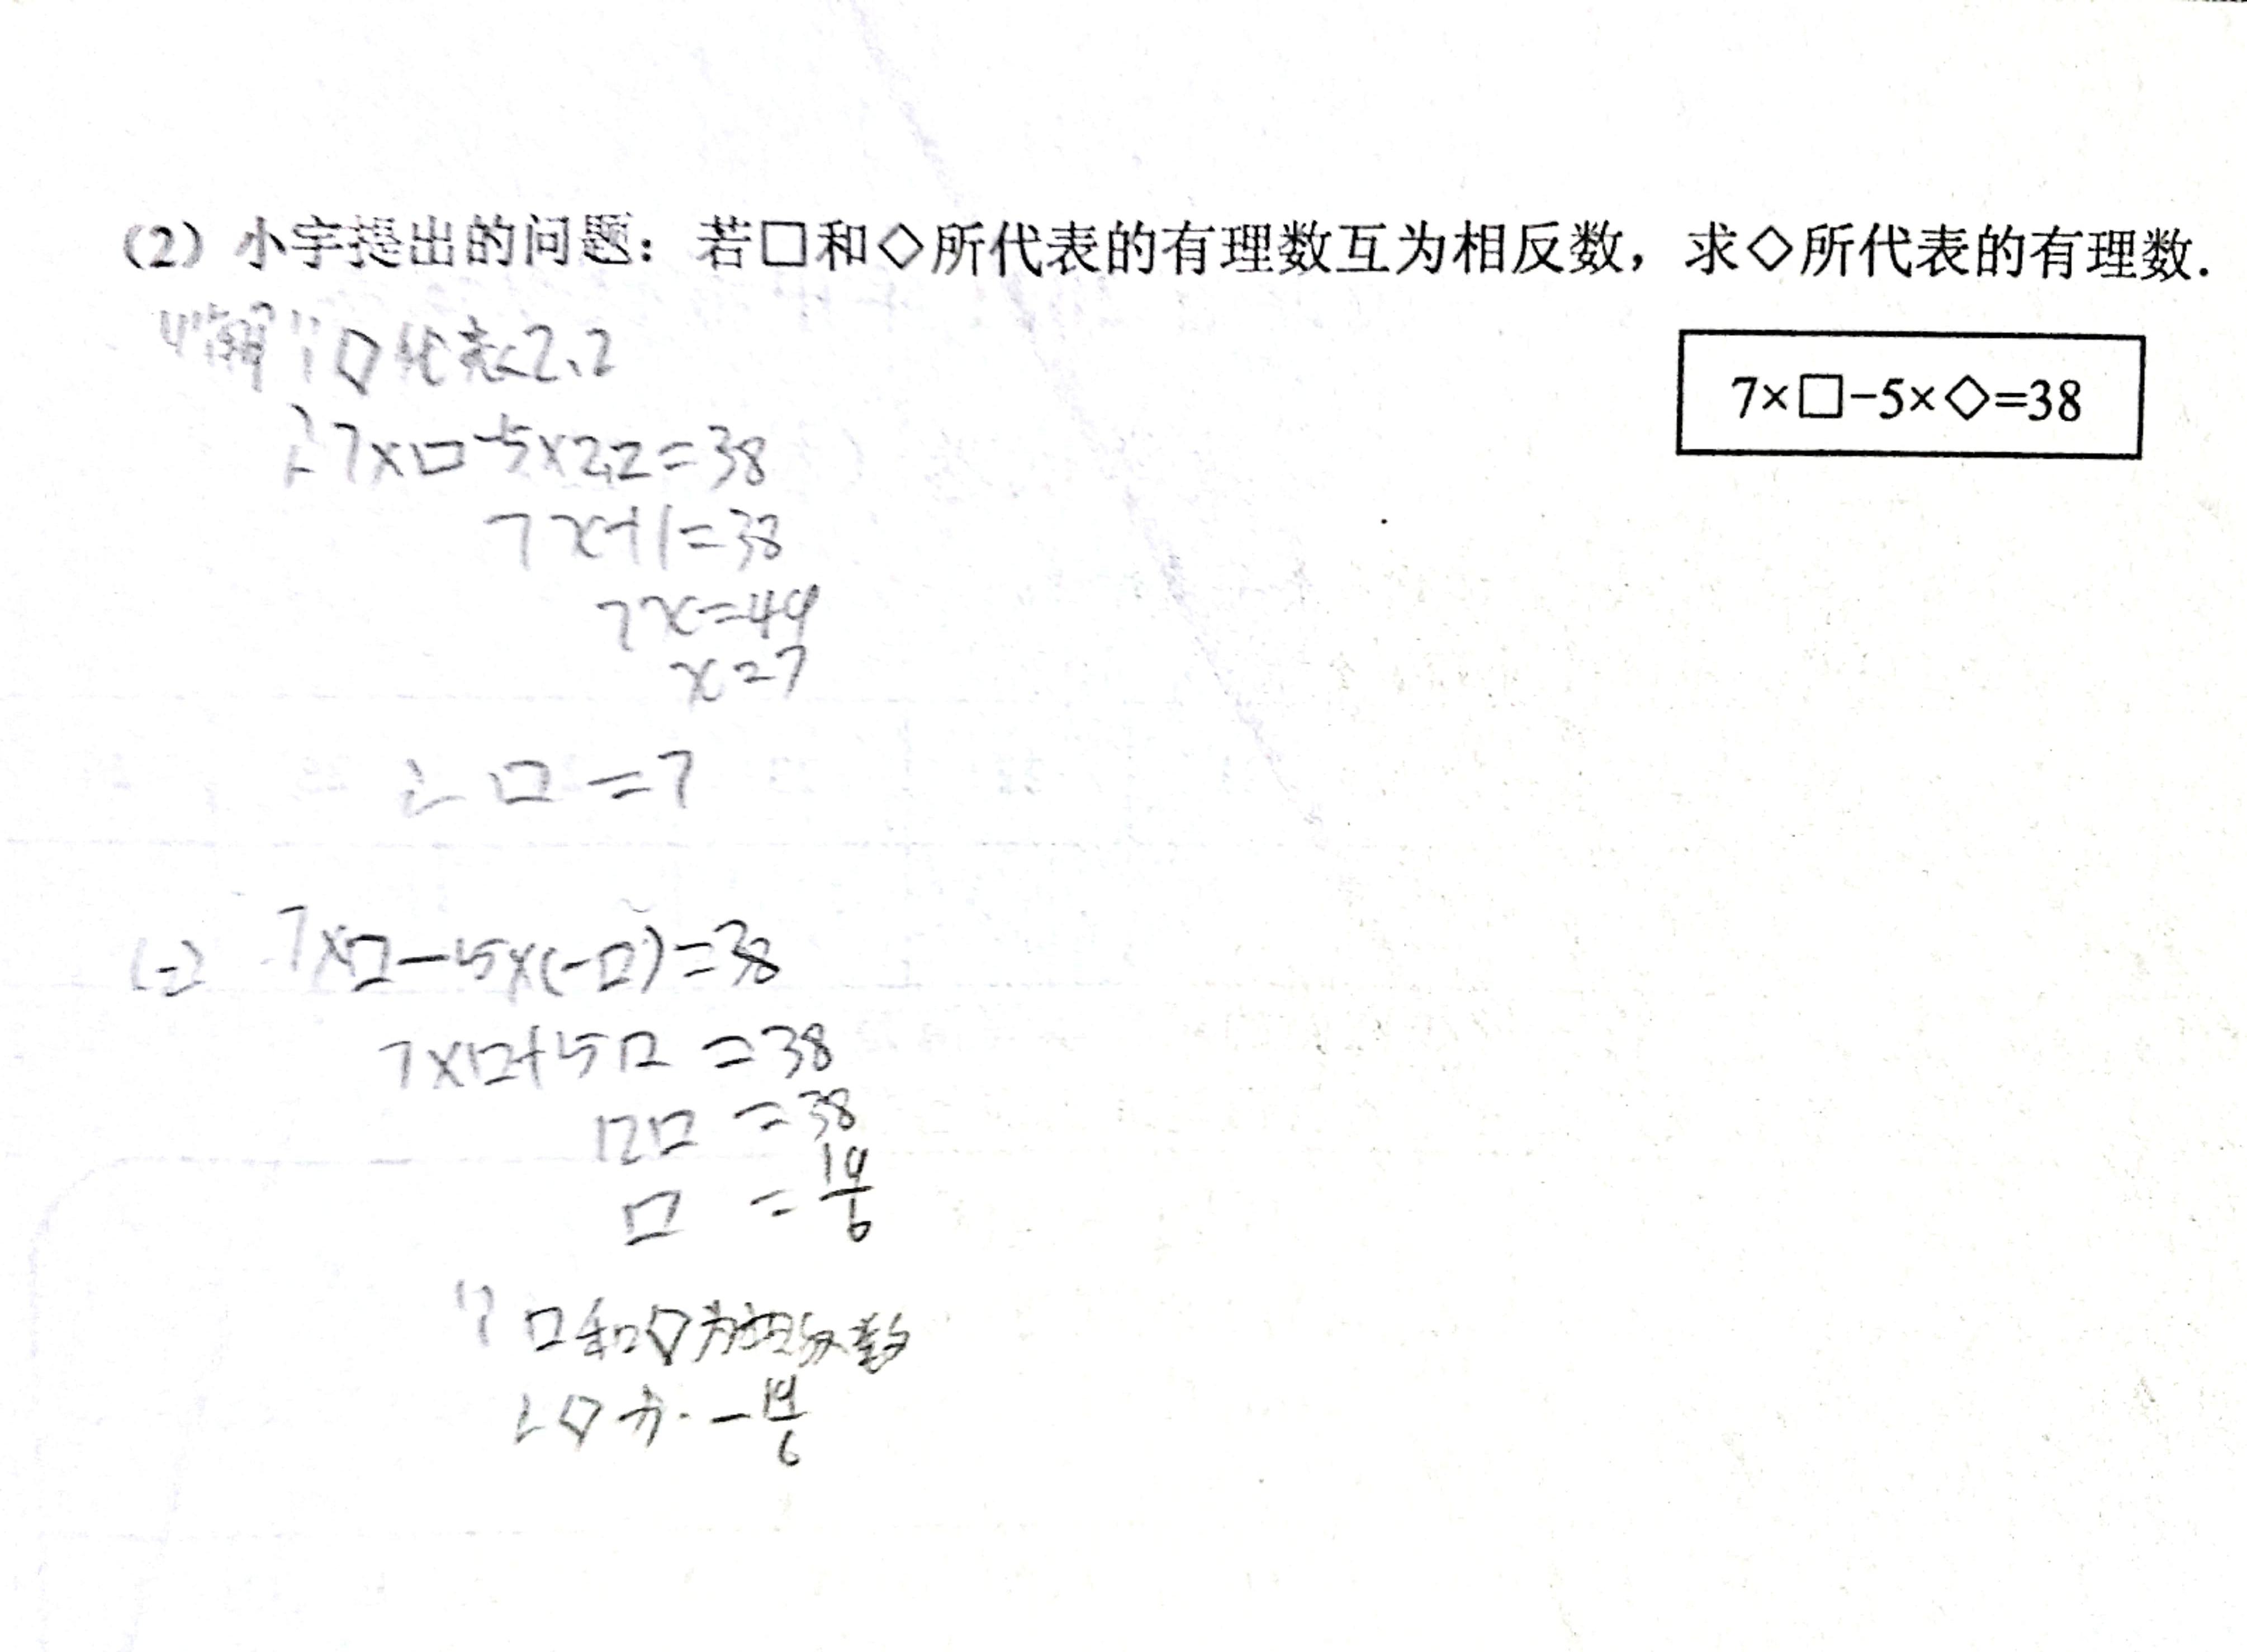 (2) 小宇提出的问题：若□和◇所代表的有理数互为相反数，求◇所代表的有理数.
7×□-5×◇=38
(1)解∵◇代表2.2
∴7×□-5×2.2=38
7x-11=38
7x=49
x=7
∴□=7
(2) 7×□-5×(-□)=38
7×□+5□=38
12□=38
□=19/6
∵□和◇为相反数
∴◇为-19/6